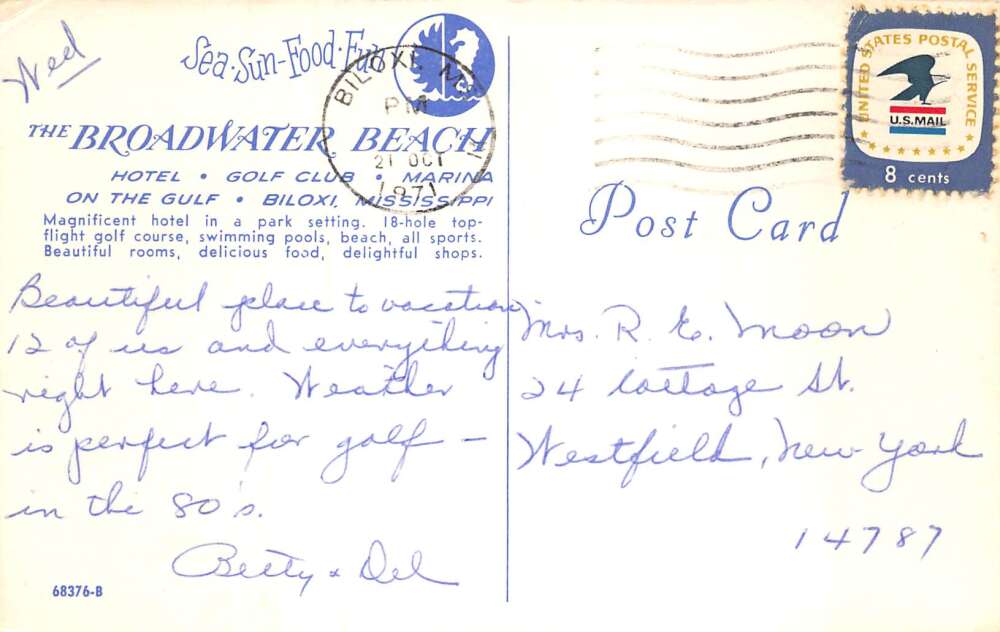 Wed
Sea·Sun·Food·Fun
THE BROADWATER BEACH
HOTEL • GOLF CLUB • MARINA
ON THE GULF • BILOXI, MISSISSIPPI
Magnificent hotel in a park setting. 18-hole top-
flight golf course, swimming pools, beach, all sports.
Beautiful rooms, delicious food, delightful shops.
BILOXI, MS
PM
21 OCT
1971
UNITED STATES POSTAL SERVICE
U.S. MAIL
8 cents
Post Card
Beautiful place to vacation
12 of us and everything
right here. Weather
is perfect for golf –
in the 80's.
Betty & Del
68376-B
Mrs. R. E. Moon
24 Cottage St.
Westfield, New York
14787